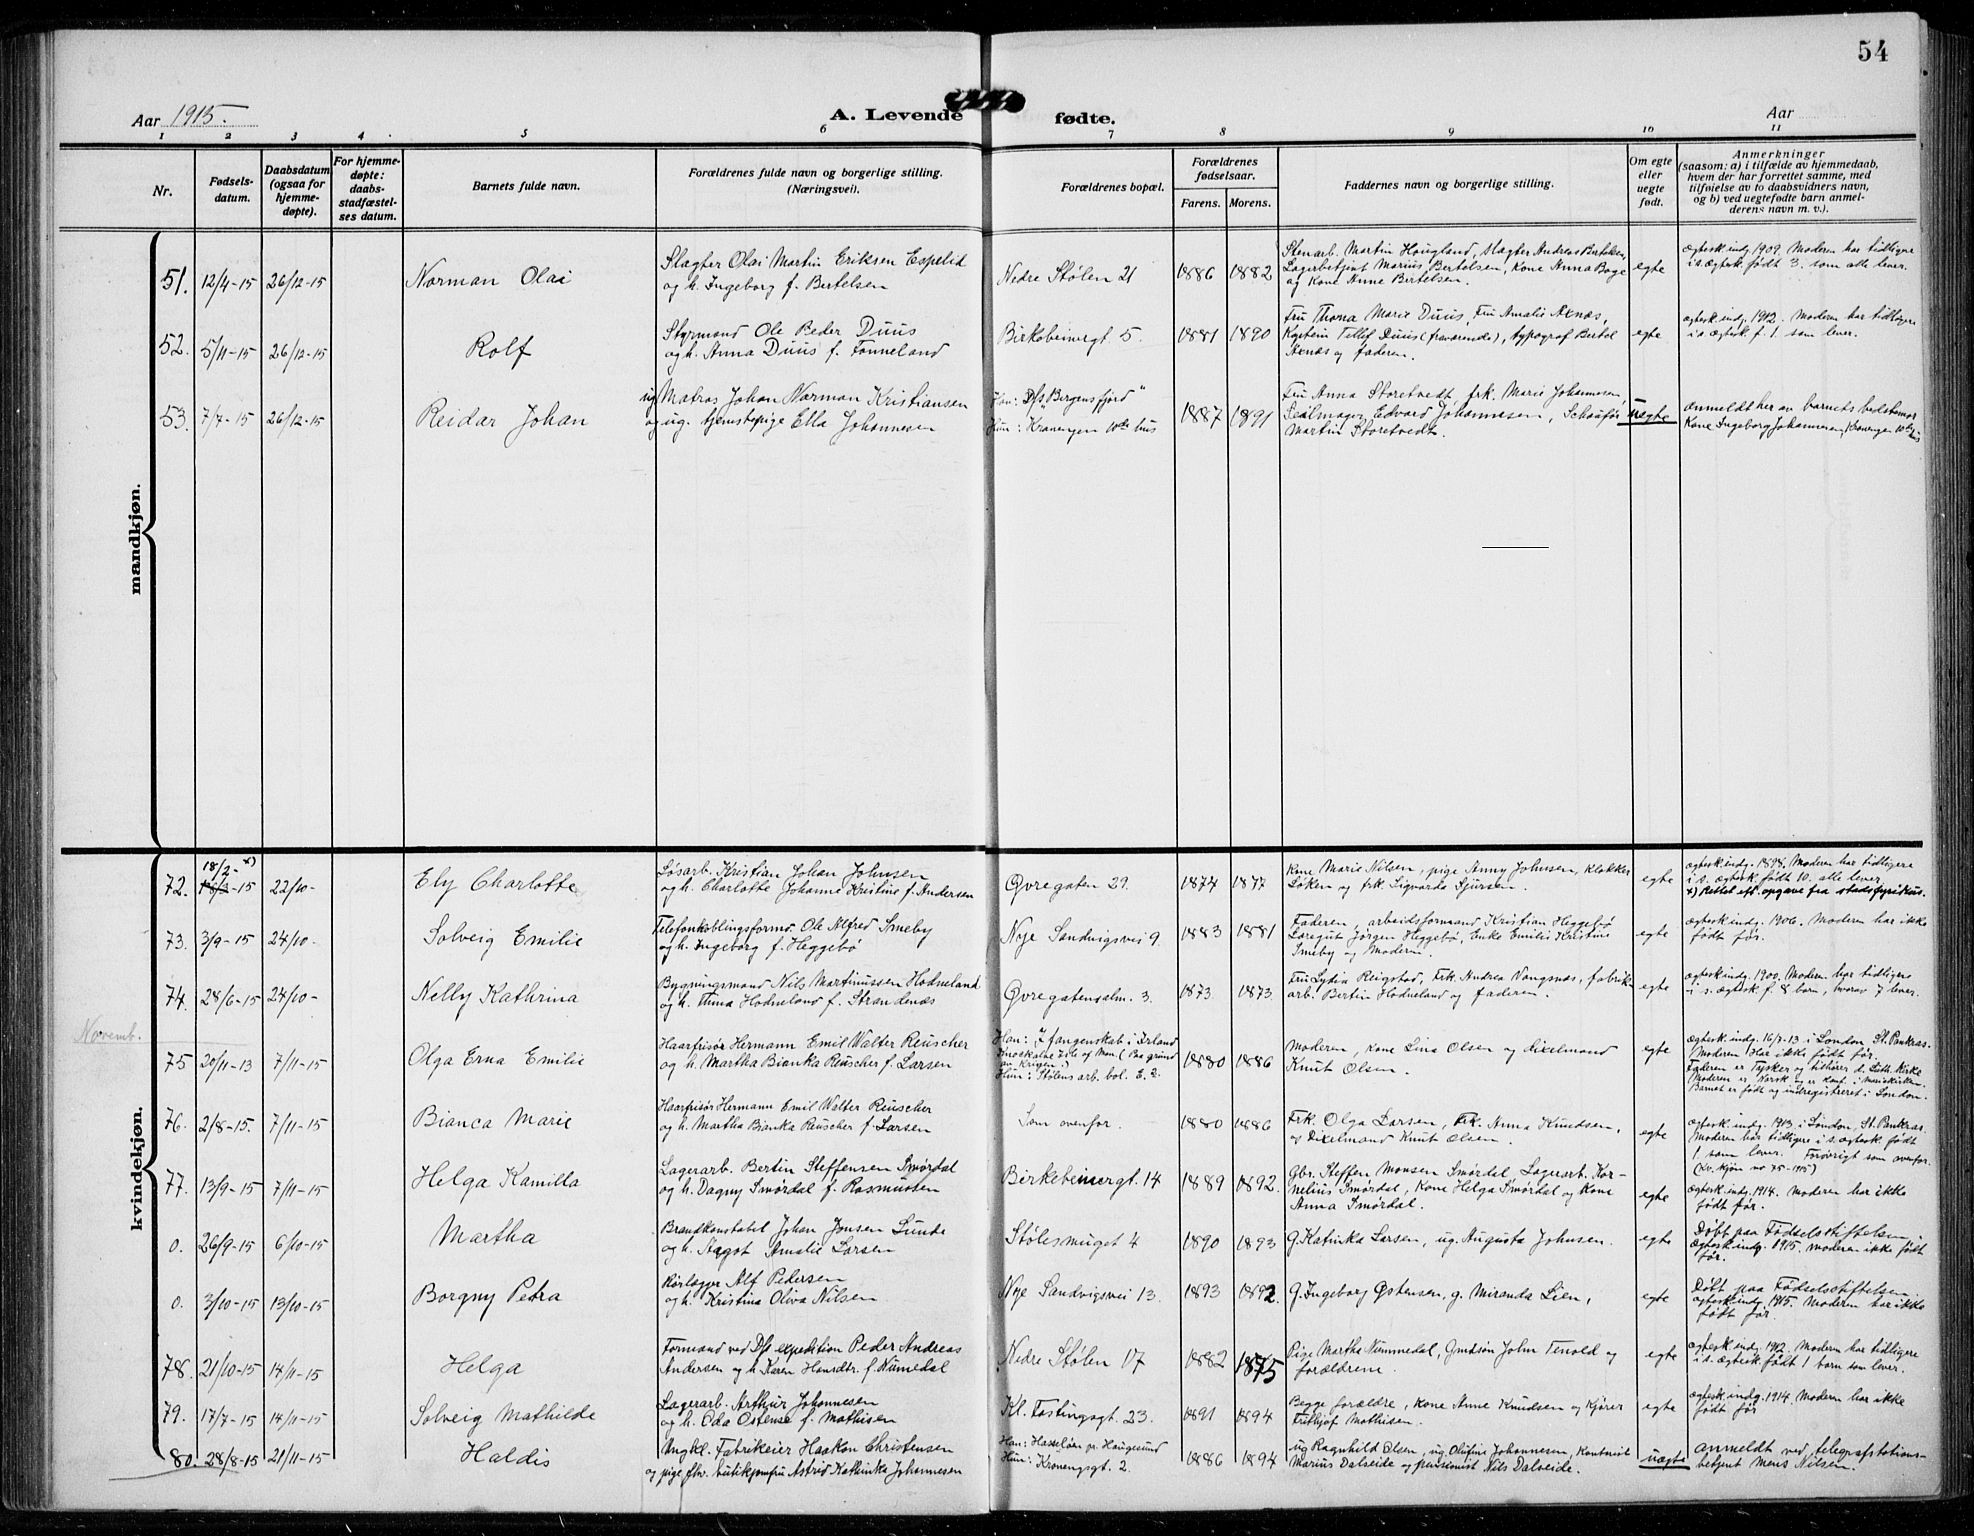 54
Aar 1915.
A. Levende fødte.
Aar
1 2 3 4 5 6 7 8 9 10 11
Nr.
Fødsels-
datum.
Daabsdatum
(ogsaa for
hjemme-
døpte).
For hjemme-
døpte:
daabs-
stadfæstel-
ses datum.
Barnets fulde navn.
Forældrenes fulde navn og borgerlige stilling.
(Næringsvei).
Forældrenes bopæl.
Forældrenes
fødselsaar.
Farens. Morens.
Faddernes navn og borgerlige stilling.
Om egte
eller
uegte
født.
Anmerkninger
(saasom: a) i tilfælde av hjemmedaab,
hvem der har forrettet samme, med
tilføielse av to daabsvidners navn,
og b) ved uegtefødte barn anmel-
derens navn m. v.).
mandkjøn.
51. 12/4-15 26/12-15 Norman Olai
Slagter Olai Martin Eriksen Espelid
og h. Ingeborg f. Bertelsen
Nedre Stølen 21 1886 1882
Stenarb. Martin Haugland, slagter Andreas Bertelsen,
Lagerbetjent Marius Bertelsen, Kone Anna Boge
og Kone Anne Bertelsen.
egte
ægtesk. indg. 1909. Moderen har tidligere
i s. ægtesk. født 3. som alle lever.
52. 5/11-15 26/12-15 Rolf
Styrmand Ole Peder Duus
og h. Anna Duus f. Tonneland
Birkebeinergt 5. 1881 1890
Fru Thona Marie Duus, Fru Amalie Axnæs,
Kaptein Tellef Duus (fraværende), typograf Bertel
Axnæs og faderen.
egte
ægtesk. indg. 1912. Moderen har tidligere
i s. ægtesk. f. 1. som lever.
53. 7/7-15 26/12-15 Reidar Johan
ug Matros Johan Norman Kristiansen
og ug. tjenestepige Ella Johannesen
Han: D/s "Bergensfjord"
Hun: Kronengen 10de hus
1887 1891
Fru Anna Storetvedt, frk. Marie Johannesen,
Seilmager Edvard Johannesen, Schauför
Martin Storetvedt.
uægte
anmeldt her av barnets bedstemor
Kone Ingeborg Johannesen, Kronengen 10de hus
kvindekjøn.
72. 18/2- x) 22/10- Ely Charlotte
Løsarb. Kristian Johan Johnsen
og h. Charlotte Johanne Kristine f. Andersen
Øvregaten 29. 1874 1877
Kone Marie Nilsen, pige Anny Johnsen, klokker
Løken og frk. Sigvarda Sjursen.
egte
ægtesk. indg. 1898. Moderen har tidligere
i s. ægtesk. født 10. alle lever.
x) Rettet eft. opgave fra stadsfysikus.
73. 3/9-15 24/10- Solveig Emilie
Telefonkoblingsformd. Ole Alfred Smeby
og h. Ingeborg f. Heggebø
Nye Sandvigsvei 9. 1883 1881
Faderen, arbeidsformand Kristian Heggebø
Løregut Jørgen Heggebø, Enke Emilie Kristine
Smeby og Moderen.
egte
ægtesk. indg. 1906. Moderen har ikke
født før.
74. 28/6-15 24/10- Nelly Kathrina
Bygningsmand Nils Martinussen Hodneland
og h. Anna Hodneland f. Strandenæs
Øvregatensalm. 3. 1873. 1873.
Fru Lydia Reigstad, Frk. Andrea Vangsnæs, fabrik-
arb. Bertin Hodneland og faderen.
egte
ægtesk. indg. 1900. Moderen har tidligere
i s. ægtesk. f. 8 barn, hvorav 7 lever.
Novemb.
75 20/11-13 7/11-15 Olga Erna Emilie
Haarfrisør Hermann Emil Walter Reuscher
og h. Martha Bianka Reuscher f. Larsen
Han: I fangenskab i Irland
Knockaloe Isle of Man. (Paa grund
av Krigen.)
Hun: Stølens arb. bol. E. 2.
1880 1886
Moderen, kone Lina Olsen og dixelmand
Knut Olsen.
egte
ægtesk. indg. 16/7-13 i London St. Pankras.
Moderen har ikke født før.
Faderen er Tysker og tilhører d. Luth. Kirke
Moderen er Norsk og er konf. i Mariakirken.
Barnet er født og indregistreret i London.
76. 2/8-15. 7/11-15 Bianca Marie
Haarfrisør Hermann Emil Walter Reuscher
og h. Martha Bianka Reuscher f. Larsen
Som ovenfor. 1880 1886
Frk. Olga Larsen, Frk. Anna Knudsen,
og Dixelmand Knut Olsen.
egte
ægtesk. indg. 1913. i London, St. Pankras.
Moderen har tidligere i s. ægtesk. født
1 som lever. Forøvrigt som ovenfor.
(Kv. kjøn no 75-1915)
77. 13/9-15 7/11-15 Helga Kamilla
Lagerarb. Bertin Steffensen Smørdal
og h. Dagny Smørdal f. Rasmussen
Birkebeinergt. 14 1889 1892.
Gbr. Steffen Monsen Smørdal, Lagerarb. Kor-
nelius Smørdal, Kone Helga Smørdal og Kone
Anna Smørdal.
egte
ægtesk. indg. 1914. Moderen har ikke
født før.
0. 26/9-15 6/10-15 Martha
Brandkonstabel Johan Jonsen Sunde
og h. Aagot Amalie Larsen
Stølesmuget 4 1890 1893
G. Katinka Larsen, ug. Augusta Johnsen.
egte
Døbt paa Fødselsstiftelsen.
ægtesk. indg. 1915. moderen ikke født
før.
0. 3/10-15 13/10-15 Borgny Petra
Rørlægger Alf Pedersen
og h. Kristine Oliva Nilsen
Nye Sandvigsvei 13. 1893 1892.
G. Ingeborg Østensen, g. Miranda Lien,
egte
Døbt paa Fødselsstiftelsen.
ægtesk. indg. 1915. Moderen har ikke
født før.
78. 21/10-15 14/11-15 Helga
Formand ved Dfs expedition Peder Andreas
Andersen og h. Karen Hansdtr. f. Numedal
Nedre Stølen 17 1882 1875
Pige Marthe Nummedal, Gmdsøn John Tenold og
forældrene.
egte
ægtesk. indg. 1912. Moderen har tidligere
i s. ægtesk. født 1 barn som lever.
79. 17/7-15 14/11-15 Solveig Mathilde
Lagerarb. Arthur Johannesen
og h. Oda Ostense f. Mathisen
Kl. Fostingsgt. 23. 1891 1894
Begge forældre, kone Anne Knudsen og Kjører
Frithjof Mathisen.
egte
ægtesk. indg. 1914 Moderen har ikke
født før
80. 28/8-15 21/11-15 Haldis
Ungkl. Fabrikeier Haakon Christensen
og pige fhv. butikjomfru Astrid Kathinka Johannesen
Han: Hasseløen pr. Haugesund
Hun: Kronengsgt. 2.
1886 1894
ug Ragnhild Olsen, ug. Olufine Johannesen, Kontorist
Marius Dalseide og pensionist Nils Dalseide.
uægte
anmeldt ved telegrafstations-
betjent Mens Nilsen.